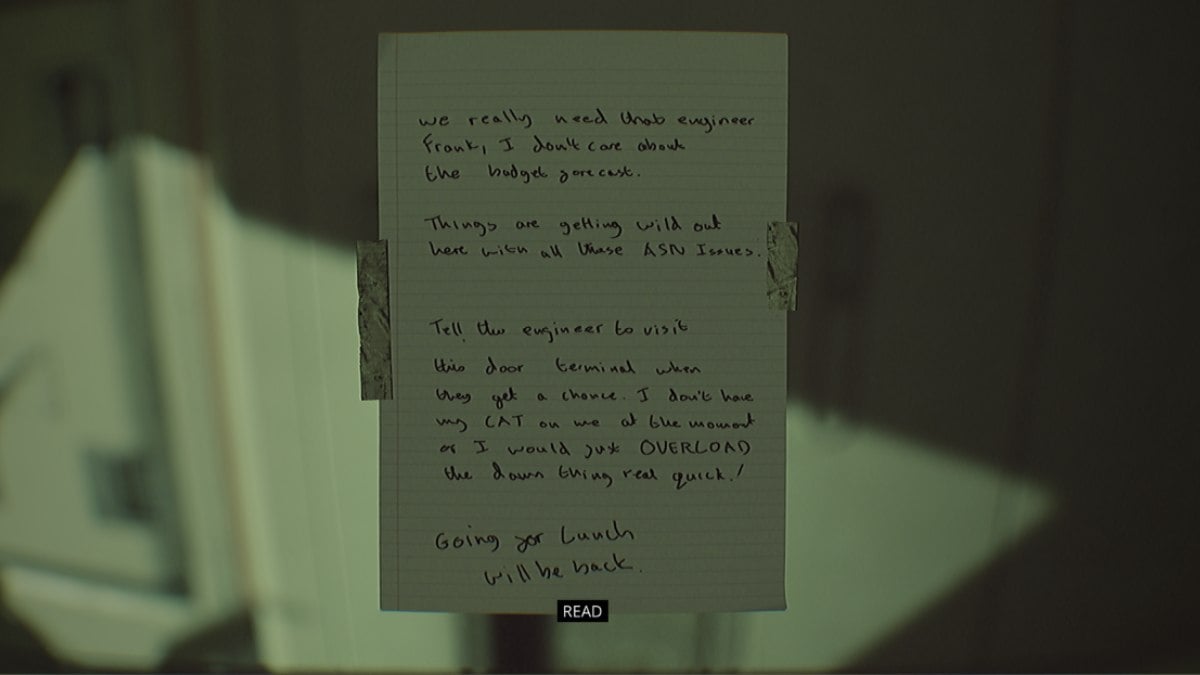 we really need that engineer
Frank, I don't care about
the budget forecast.
Things are getting wild out
here with all these ASN Issues.
Tell the engineer to visit
this door terminal when
they get a chance. I don't have
my CAT on me at the moment
or I would just OVERLOAD
the damn thing real quick!
Going for Lunch
will be back.
READ